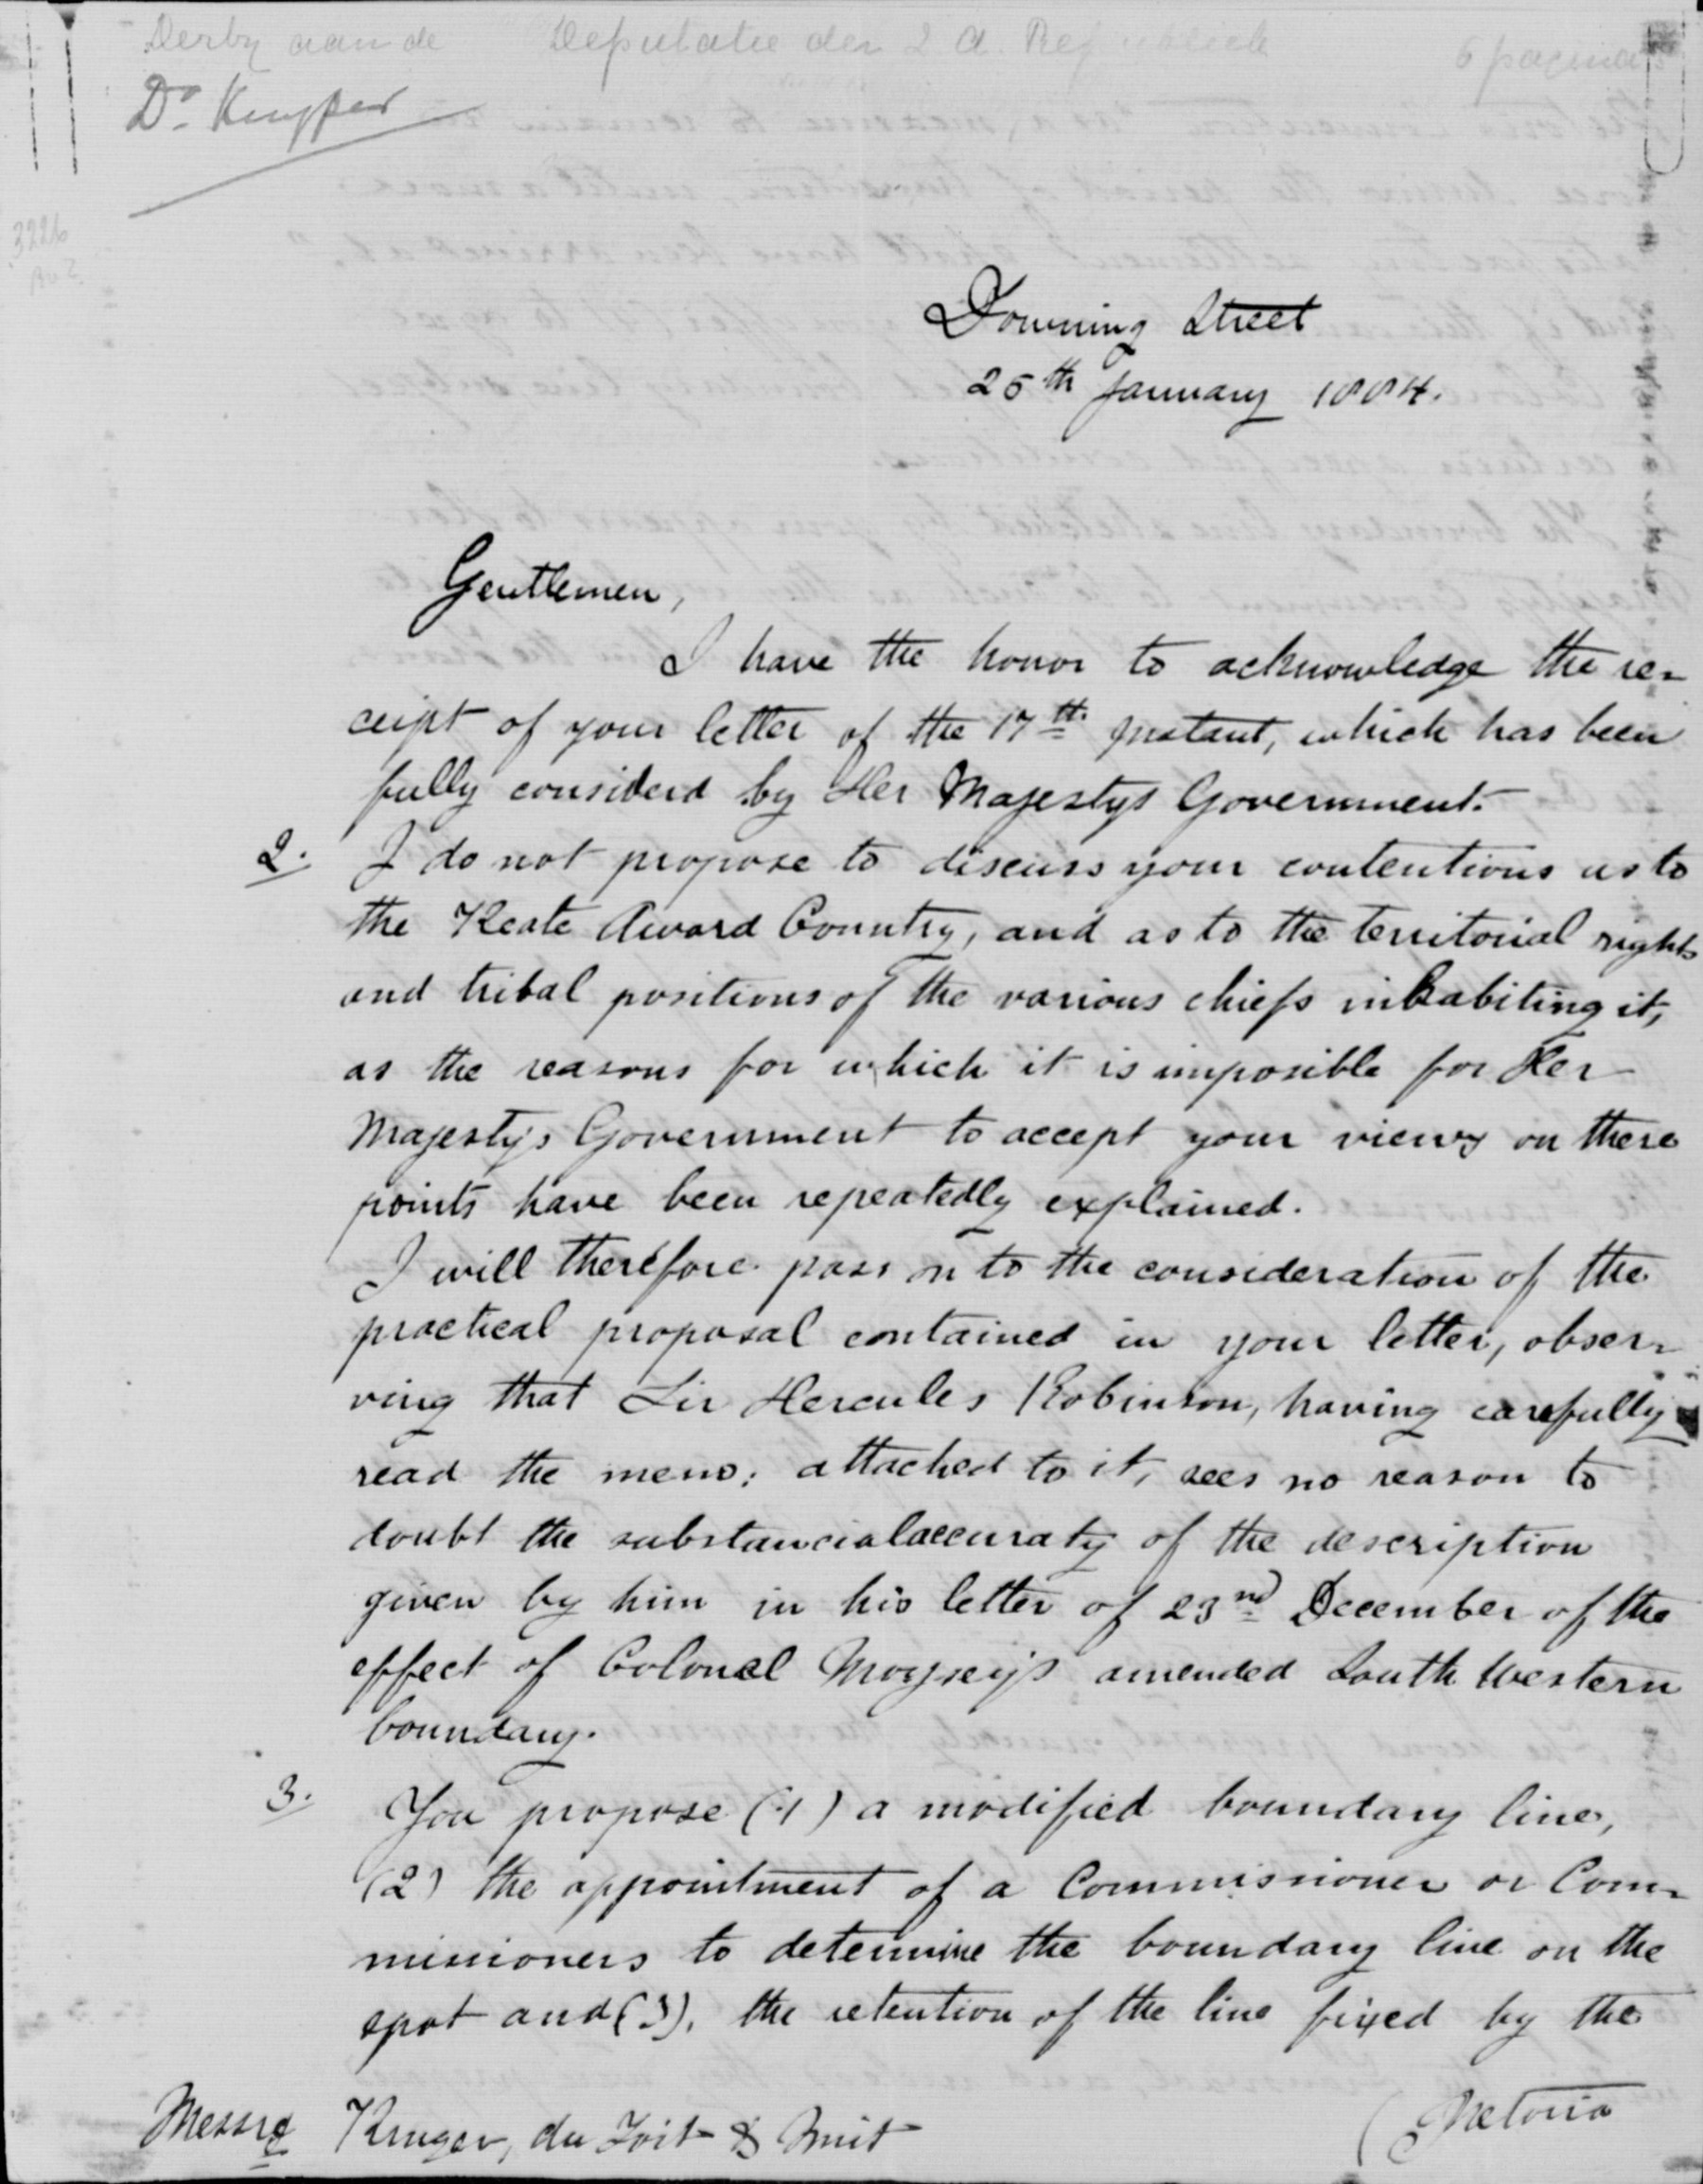 Derby aan de Deputatie der Z. A. Republiek 6 pagina's
Dr. Kuyper
Downing Street
25th January 1884.
Gentlemen,
I have the honor to acknowledge the re-
ceipt of your letter of the 17th Instant, which has been
fully considerd by Her Majestys Government.
2. I do not propose to discuss your contentions as to
the Keate Award Country, and as to the territorial rights
and tribal positions of the various chiefs inhabiting it,
as the reasons for which it is imposible for Her
Majestys Government to accept your views on these
points have been repeatedly explained.
I will therefore pass on to the consideration of the
practical proposal contained in your letter, obser-
ving that Sir Hercules Robinson, having carefully
read the memo: attached to it, sees no reason to
doubt the substancial accuraty of the description
given by him in his letter of 23nd December of the
effect of Colonel Moysey's amended South Western
boundary.
3. You propose (1) a modified boundary line,
(2) the appointment of a Commissioner or Com-
missioners to determine the boundary line on the
spot and (3), the retention of the line fixed by the
(Pretoria
Messrs Kruger, du Toit & Smit